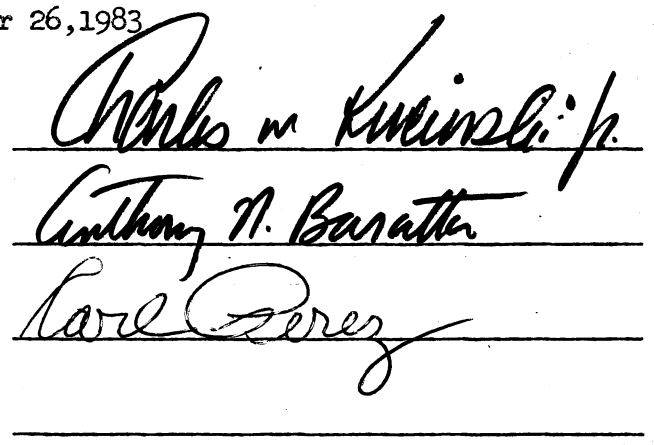 r 26,1983
Charles M Kucinski Jr.
Anthony N. Baratta
Karl Perez